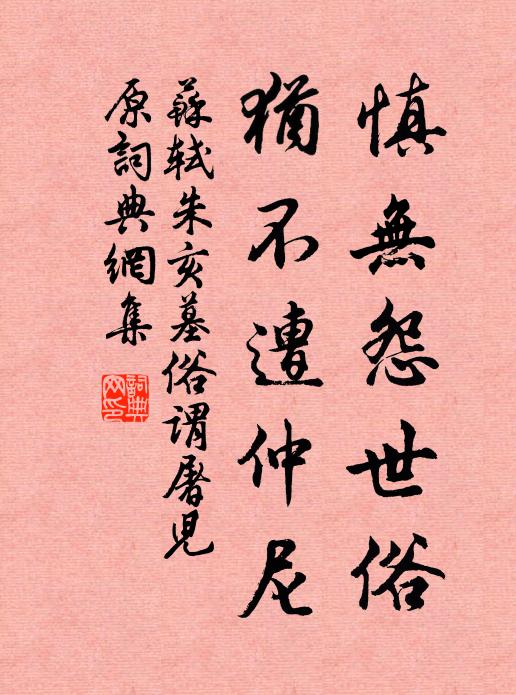 慎無怨世俗
猶不遭仲尼
蘇軾朱亥墓俗謂屠兒
原詞典網集
詞典
网印